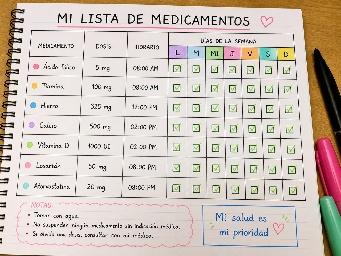 MI LISTA DE MEDICAMENTOS
MEDICAMENTO DOSIS HORARIO DÍAS DE LA SEMANA
L M Mi J V S D
Ácido fólico 5 mg 08:00 AM
Tiamina 100 mg 08:00 AM
Hierro 325 mg 12:00 PM
Calcio 500 mg 02:00 PM
Vitamina D 1000 UI 02:00 PM
Losartán 50 mg 08:00 PM
Atorvastatina 20 mg 08:00 PM
NOTAS:
• Tomar con agua.
• No suspender ningún medicamento sin indicación médica.
• Si olvido una dosis, consultar con mi médico.
Mi salud es
mi prioridad